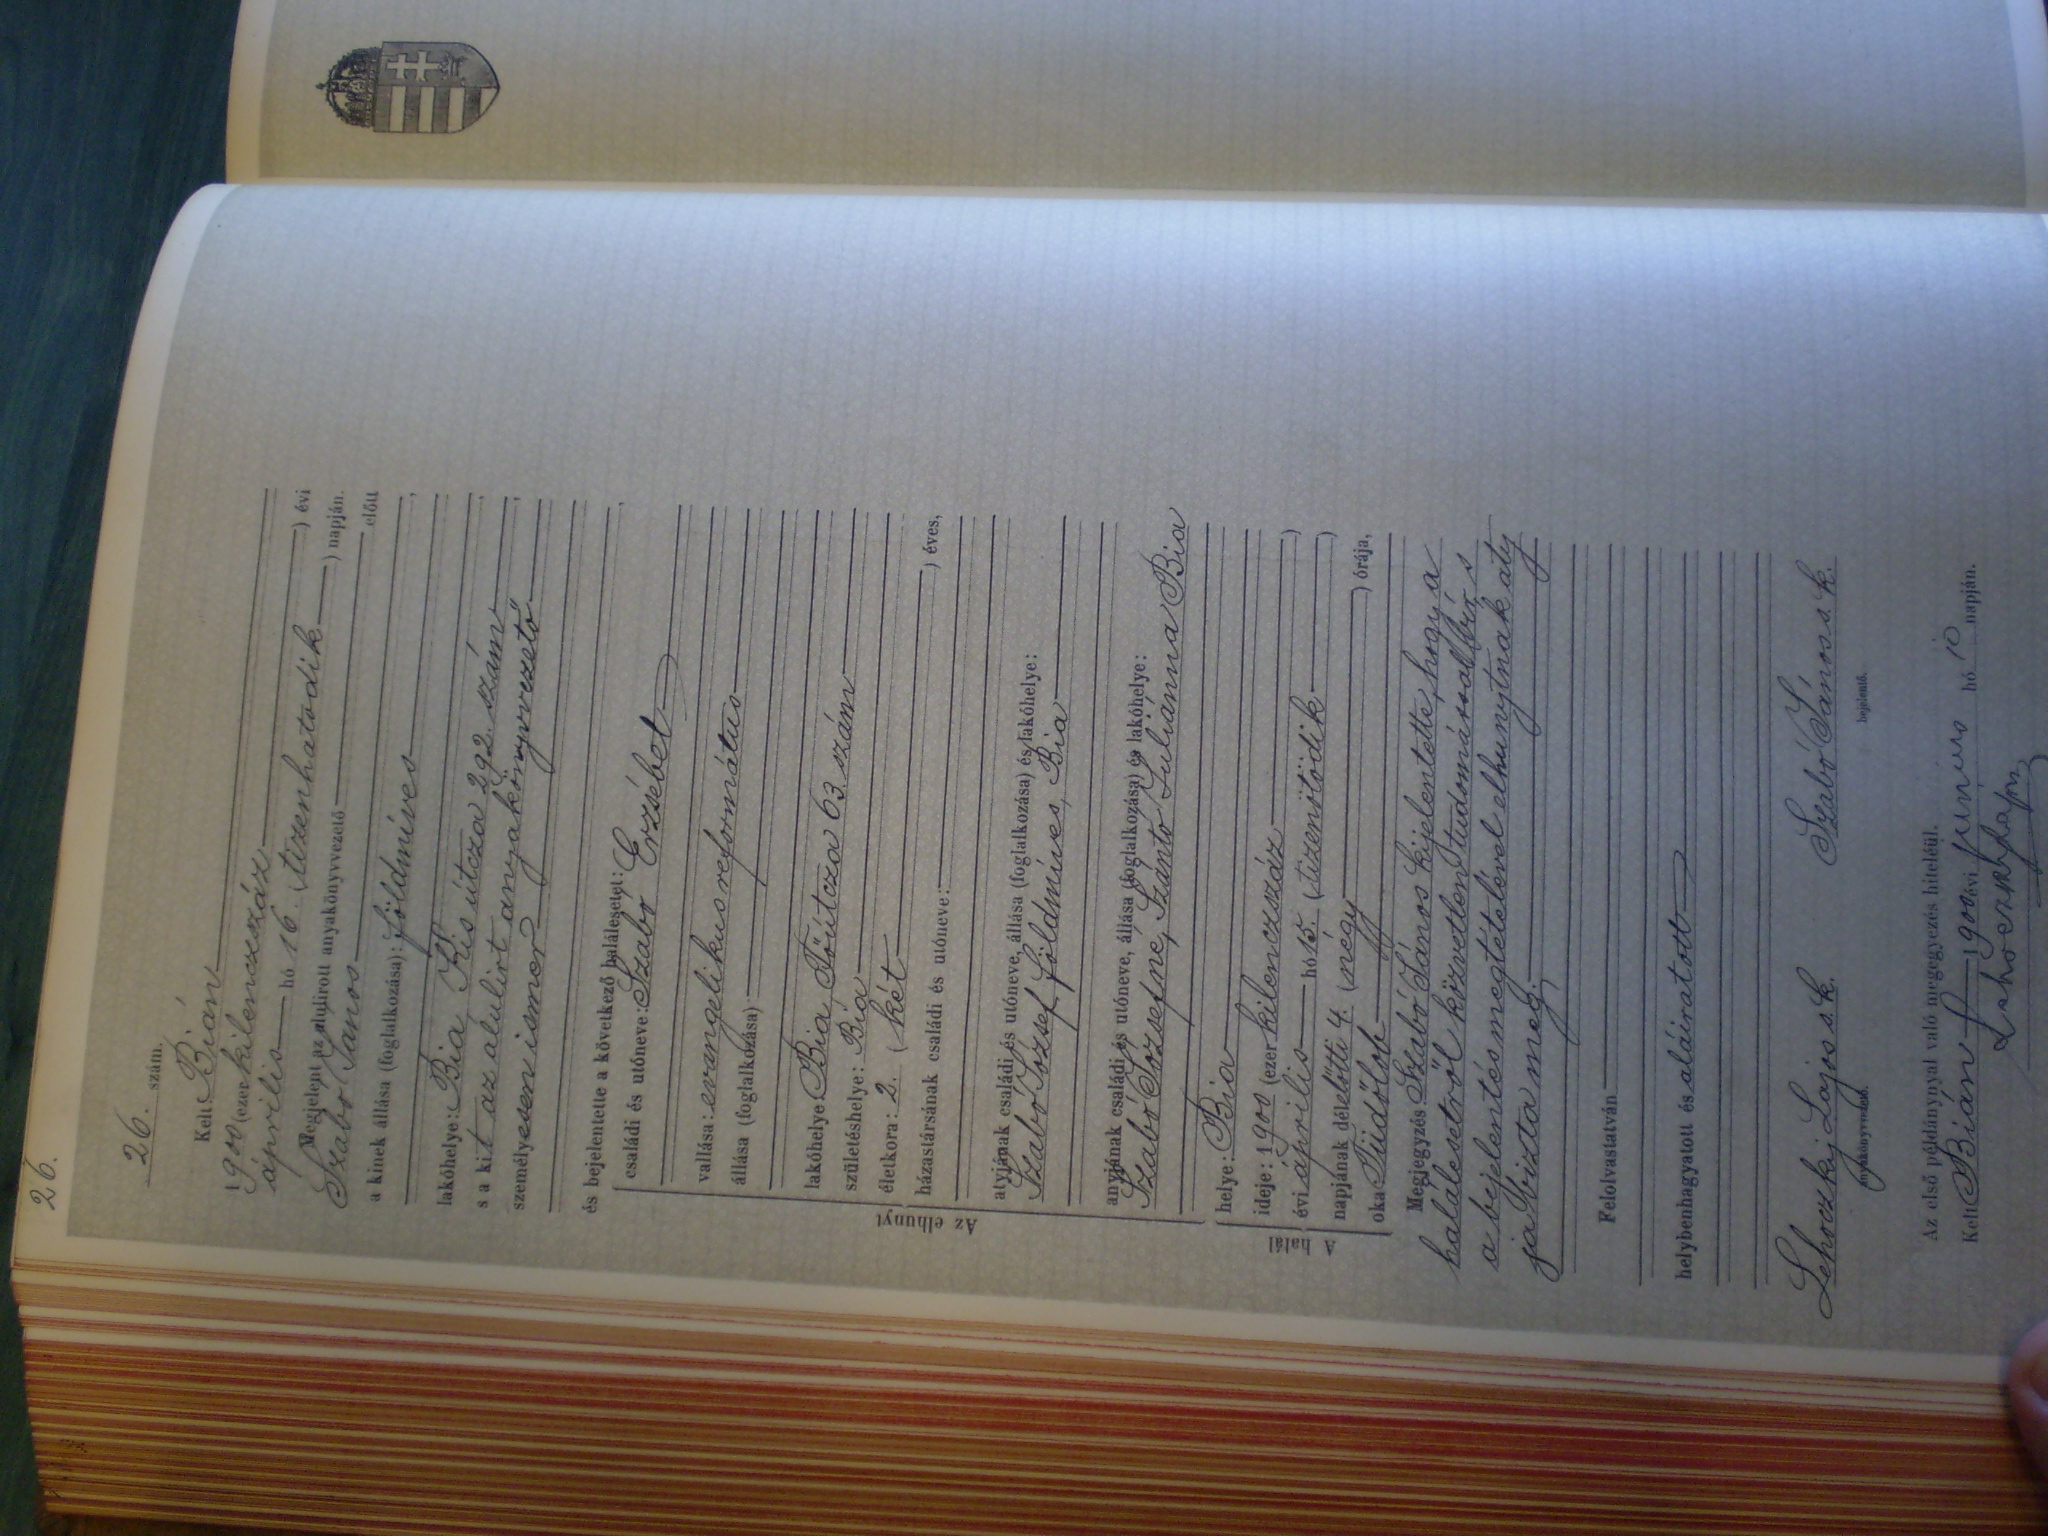 26.
26. szám.
Kelt Bián
1900 (ezer kilenczszáz
) évi
április hó 16. (tizenhatodik ) napján.
Megjelent az alulirott anyakönyvvezető előtt
Szabó János
a kinek állása (foglalkozása): földmíves,
lakóhelye: Bia Kis útcza 292. szám,
s a kit az alulirt anyakönyvvezető,
személyesen ismer
és bejelentette a következő halálesetet:
családi és utóneve: Szabó Erzsébet
vallása: evangelikus református
állása (foglalkozása):
lakóhelye Bia, Főútcza 63. szám
születéshelye: Bia
életkora: 2. (két ) éves,
házastársának családi és utóneve:
Az elhunyt
atyjának családi és utóneve, állása (foglalkozása) és lakóhelye:
Szabó József földmíves, Bia
anyjának családi és utóneve, állása (foglalkozása) és lakóhelye:
Szabó Józsefné, Szántó Juliánna Bia
helye: Bia
ideje: 1900 (ezer kilenczszáz )
évi április hó 15. (tizenötödik )
napjának délelőtti 4. (négy ) órája,
oka Tüdőlob
A halál
Megjegyzés Szabó János kijelentette, hogy a
halálesetről közvetlen tudomása s
a bejelentés megtételével elhunytnak aty
ja bizta meg.
Felolvastatván
helybenhagyatott és aláíratott
Lehoczky Lajos s. k. Szabó János s. k.
anyakönyvvezető. bejelentő.
Az első példánynyal való megegyezés hiteléül.
Kelt Bián 1900 évi junius hó 10 napján.